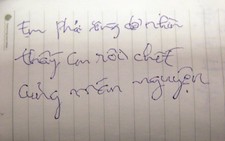 Em phải sống để nhìn
thấy em rồi chết
cũng mãn nguyện